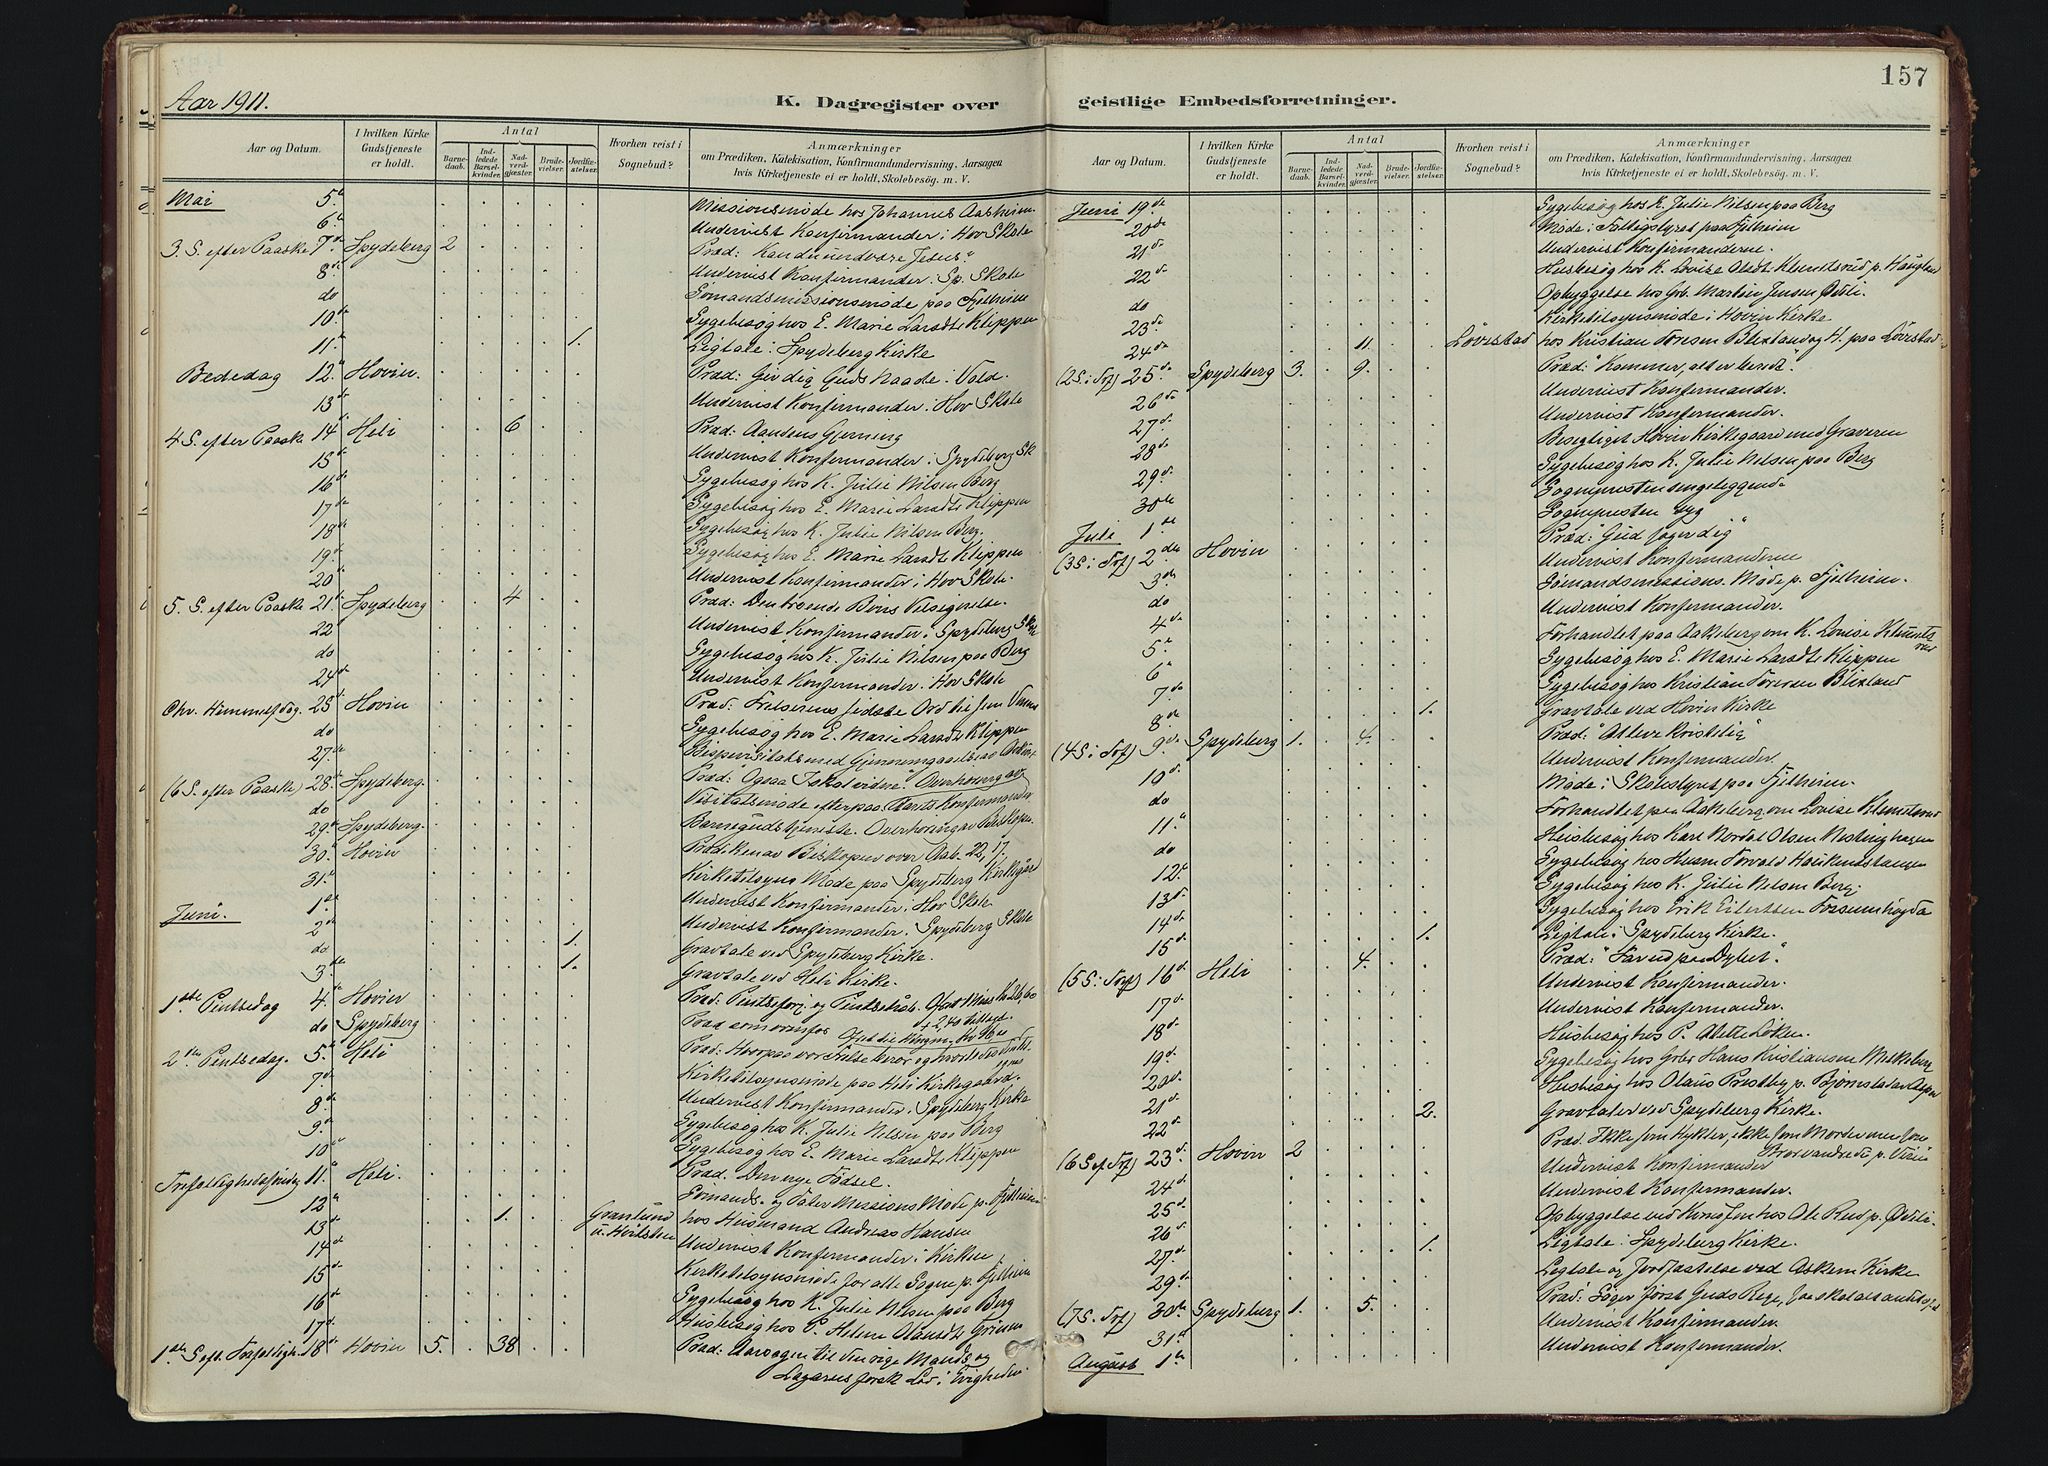 157
Aar 1911.
K. Dagregister over geistlige Embedsforretninger.
Aar og Datum.
I hvilken Kirke Gudstjeneste er holdt.
Antal
Barnedaab.
Indledede Barselkvinder.
Nadverdgjæster.
Brudevielser.
Jordfæstelser.
Hvorhen reist i Sognebud?
Anmærkninger
om Prædiken, Katekisation, Konfirmandundervisning, Aarsagen
hvis Kirketjeneste ei er holdt, Skolebesøg m. V.
Mai 5te Missionsmøde hos Johannes Aasheim
6te Undervist Konfirmander i Hov Skole
3. S. efter Paaske 7de Spydeberg 2 Præd:
8de Undervist Konfirmander i Sp. Skole
do Sømandsmissionsmøde paa Fjelheim
10. Sygebesøg hos E. Marie Larsdt. Klippen
11. 1. Ligtale i Spydeberg Kirke
Bededag 12te Hovin. Præd: Giv dig Guds Naade i Vold.
13de Undervist Konfirmander i Hov Skole
4 S. efter Paaske 14de Heli 6 Præd: Aandens Gjerning
15de Undervist Konfirmander i Spydeberg Sk
16de Sygebesøg hos K. Julie Nilsen Berg
17de Sygebesøg hos E. Marie Larsdt. Klippen
18de Sygebesøg hos K. Julie Nilsen Berg.
19de Sygebesøg hos E. Marie Larsdt. Klippen
20de Undervist Konfirmander i Hov Skole.
5. S. efter Paaske 21de Spydeberg 4 Præd: Den troende Bøns Velsignelse.
22 Undervist Konfirmander i Spydeberg Skole
do Sygebesøg hos K. Julie Nilsen paa Berg
24de Undervist Konfirmander i Hov Skole
Chr. Himmelfdag. 25de Hovin Præd: Frelserens sidste Ord til sine Venner
do Sygebesøg hos E. Marie Larsdt. Klippen
27de Bispevisitats med Gjennemgaaelse av
(6 S. efter Paaske) 28de Spydeberg. Præd: Ogsaa I skal vidne. Overhøring av
do Visitatsmøde efterpaa. Konfirmander
29de Spydeberg. Barnegudstjeneste. Overhøring av Biskopen.
30. Hovin Prædiken av Biskopen over Aab. 22,17.
31. Kirketilsyns Møde paa Spydeberg Kirkegård
Juni. 1ste Undervist Konfirmander i Hov Skole
2de Undervist Konfirmander i Spydeberg Skole
do 1. Gravtale ved Spydeberg Kirke.
3die 1. Gravtale ved Heli Kirke.
1ste Pintsedag 4de Hovin
do Spydeberg Præd som ovenfor
2den Pintsedag. 5te Heli
7de Kirketilsynsmøde paa Heli Kirkegaard.
8de Undervist Konfirmander i Spydeberg Kirke
9de Sygebesøg hos K. Julie Nilsen paa Berg
10de Sygebesøg hos E. Marie Larsdt. Klippen
Trefoldighedssøndag 11te Heli. Præd. Den nye Fødsel.
12te Sømands- og Missions Møde p. Fjelheim
13de 1. Granlund u. hos Husmand Andreas Hansen
14de Undervist Konfirmander i Kirken
15de Kirketilsynsmøde for alle Sogne p. Fjelheim
16de Sygebesøg hos K. Julie Nilsen paa Berg
17de Husbesøg hos P. Helene Olausdt.
1ste S. eft. Trefoldigh. 18de Hovin 5. 38 Præd: Aarsagen til den rige Mands og
Lazarus forsk Lod i Evigheden
Aar og Datum.
I hvilken Kirke Gudstjeneste er holdt.
Antal
Barnedaab.
Indledede Barselkvinder.
Nadverdgjæster.
Brudevielser.
Jordfæstelser.
Hvorhen reist i Sognebud?
Anmærkninger
om Prædiken, Katekisation, Konfirmandundervisning, Aarsagen
hvis Kirketjeneste ei er holdt, Skolebesøg m. V.
Juni 19de Sygebesøg hos K. Julie Nilsen paa Berg
20de Møde i Fattigstyret paa Fjelheim
21de Undervist Konfirmanderne.
22de Husbesøg hos K. Louise
do Opbyggelse hos Grb. Martin Jensen Ødsli.
23de Kirketilsynsmøde i Hovin Kirke
24de 11. Løvestad hos Kristian Toresen Blixland og H. paa Løvestad
(2S. i Tref) 25de Spydeberg 3. 9. Præd: "Kommer, alt er beredt."
26de Undervist Konfirmander.
27de Undervist Konfirmander.
28de Besigtiget Hovin Kirkegaard med Graveren
29de Sygebesøg hos K. Julie Nilsen paa Berg
30te Sognepresten sengeliggende
Juli 1ste Sognepresten syg
(3S. i Tref) 2den Hovin Præd: "Gud søger dig"
3die Undervist Konfirmanderne
do Sømandsmissions Møde p. Fjelheim.
4de Undervist Konfirmander.
5te Forhandlet paa Aakeberg om K. Louise
6te Sygebesøg hos E. Marie Larsdt. Klippen
7de Sygebesøg hos Kristian Toresen Blixland
8de 1. Gravtale ved Hovin Kirke
(4S. i Tref) 9de Spydeberg 1. 4. Præd: "At leve kristelig"
10de Undervist Konfirmander.
do Møde i Skolestyret paa Fjelheim.
11te Forhandlet paa Aakeberg om Louise
do Husbesøg hos Karl Nordal Olsen
12te Sygebesøg hos Husm Torvald
13de Sygebesøg hos K. Julie Nilsen Berg.
14de Sygebesøg hos Erik Eilertsen Fossumhøgda
15de 1. Ligtale i Spydeberg Kirke.
(5 S. i Tref) 16de Heli 4. Præd: "Far ud paa Dybet".
17de Undervist Konfirmander.
18de Undervist Konfirmander.
19de Husbesøg hos P. Alette Løken.
20de Sygebesøg hos Grbr Hans Kristiansen
21de Husbesøg hos Olaus Prestby p.
22de 2. Gravtaler ved Spydeberg Kirke.
(6 S ef Tref) 23de Hovin 2 Præd. Ikke som Hykler, ikke som Morder men som
24de Undervist Konfirmander
25de Undervist Konfirmander.
26de Opbyggelse ved hos Ole Rud p. Ødsli.
27de 1. Ligtale i Spydeberg Kirke.
29de Ligtale og Jordfæstelse ved Askim Kirke
(7S. Tref) 30te Spydeberg 1. 5. Præd: Søger først Guds Rige, saa skal alt andet
31te Undervist Konfirmander.
August 1ste Undervist Konfirmander.